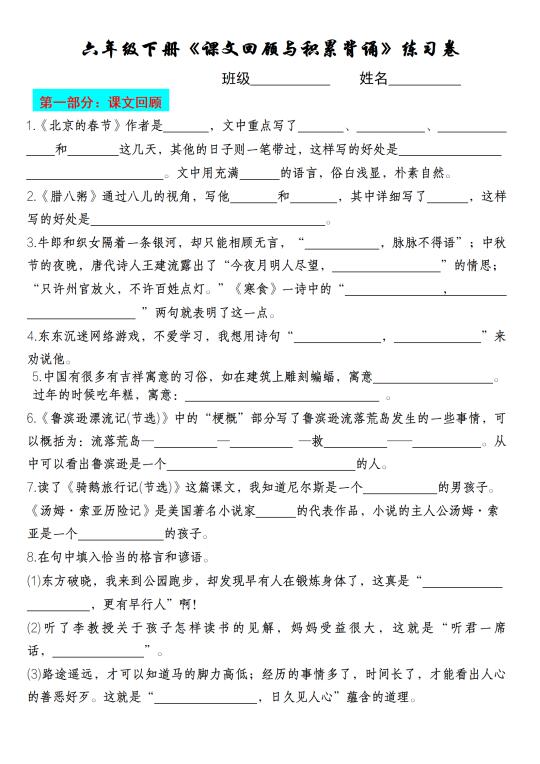 六年级下册《课文回顾与积累背诵》练习卷
班级__________ 姓名__________
第一部分：课文回顾
1.《北京的春节》作者是_______，文中重点写了_______、__________、__________
____和________这几天，其他的日子则一笔带过，这样写的好处是________________
____________________。文中用充满______的语言，俗白浅显，朴素自然。
2.《腊八粥》通过八儿的视角，写他_______和_______，其中详细写了______，这样
写的好处是__________________________________。
3.牛郎和织女隔着一条银河，却只能相顾无言，“___________，脉脉不得语”；中秋
节的夜晚，唐代诗人王建流露出了“今夜月明人尽望，________________”的情思；
“只许州官放火，不许百姓点灯。”《寒食》一诗中的“______________，________
________________ ”两句就表明了这一点。
4.东东沉迷网络游戏，不爱学习，我想用诗句“_____________，_____________”来
劝说他。
5.中国有很多有吉祥寓意的习俗，如在建筑上雕刻蝙蝠，寓意__________________。
过年的时候吃年糕，寓意：________________________ 。
6.《鲁滨逊漂流记(节选)》中的“梗概”部分写了鲁滨逊流落荒岛发生的一些事情，可
以概括为：流落荒岛—_________—_________ —救_________——__________。从
中可以看出鲁滨逊是一个____________________________的人。
7.读了《骑鹅旅行记(节选)》这篇课文，我知道尼尔斯是一个___________的男孩子。
《汤姆·索亚历险记》是美国著名小说家______的代表作品，小说的主人公汤姆·索
亚是一个_____________的孩子。
8.在句中填入恰当的格言和谚语。
(1)东方破晓，我来到公园跑步，却发现早有人在锻炼身体了，这真是“____________
__________，更有早行人”啊!
(2)听了李教授关于孩子怎样读书的见解，妈妈受益很大，这就是“听君一席
话，______________”。
(3)路途遥远，才可以知道马的脚力高低；经历的事情多了，时间长了，才能看出人心
的善恶好歹。这就是“_______________，日久见人心”蕴含的道理。